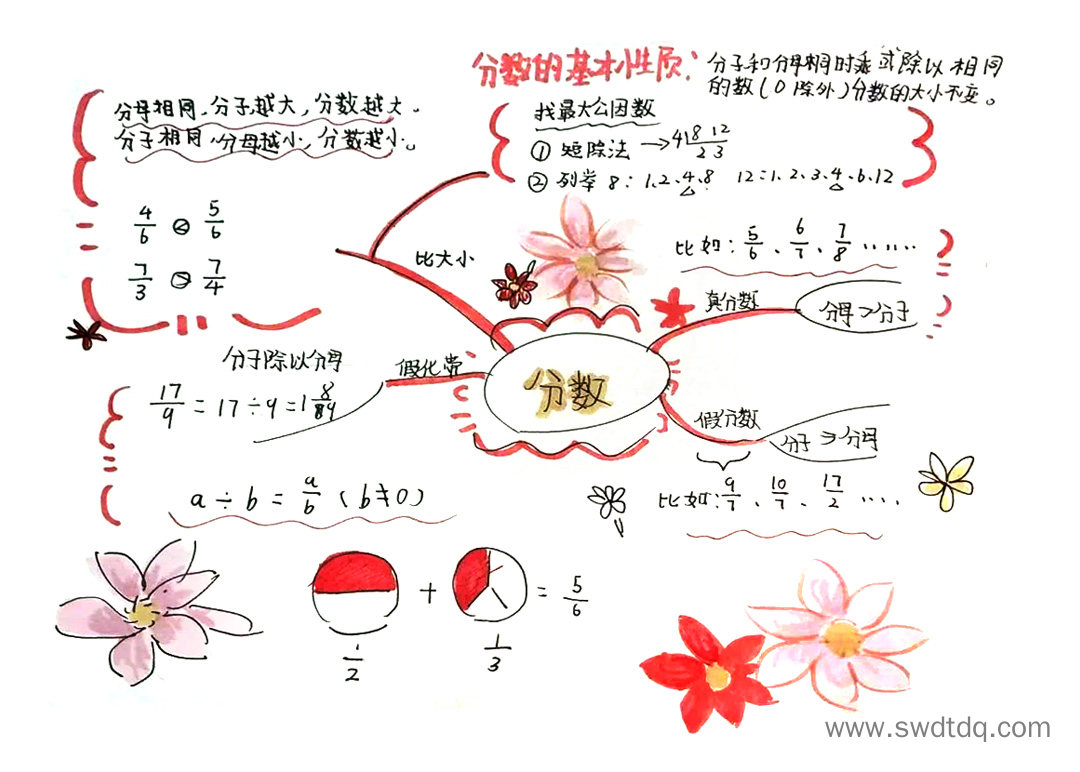 分数的基本性质：分子和分母同时乘或除以相同
的数（0除外）分数的大小不变。
分母相同，分子越大，分数越大。
分子相同，分母越小，分数越小。
4/6 < 5/6
7/3 > 7/4
找最大公因数
① 短除法 → 4 8 12
2 3
② 列举 8：1、2、4、8 12：1、2、3、4、6、12
比大小
比如：5/6、6/7、7/8 ……
真分数
分母＞分子
分数
假分数
分子≥分母
比如：9/7、10/7、17/2 ……
假化带
分子除以分母
17/9 = 17÷9 = 1 8/9
a÷b = a/b（b≠0）
+ = 5/6
1/2 1/3
www.swdtdq.com